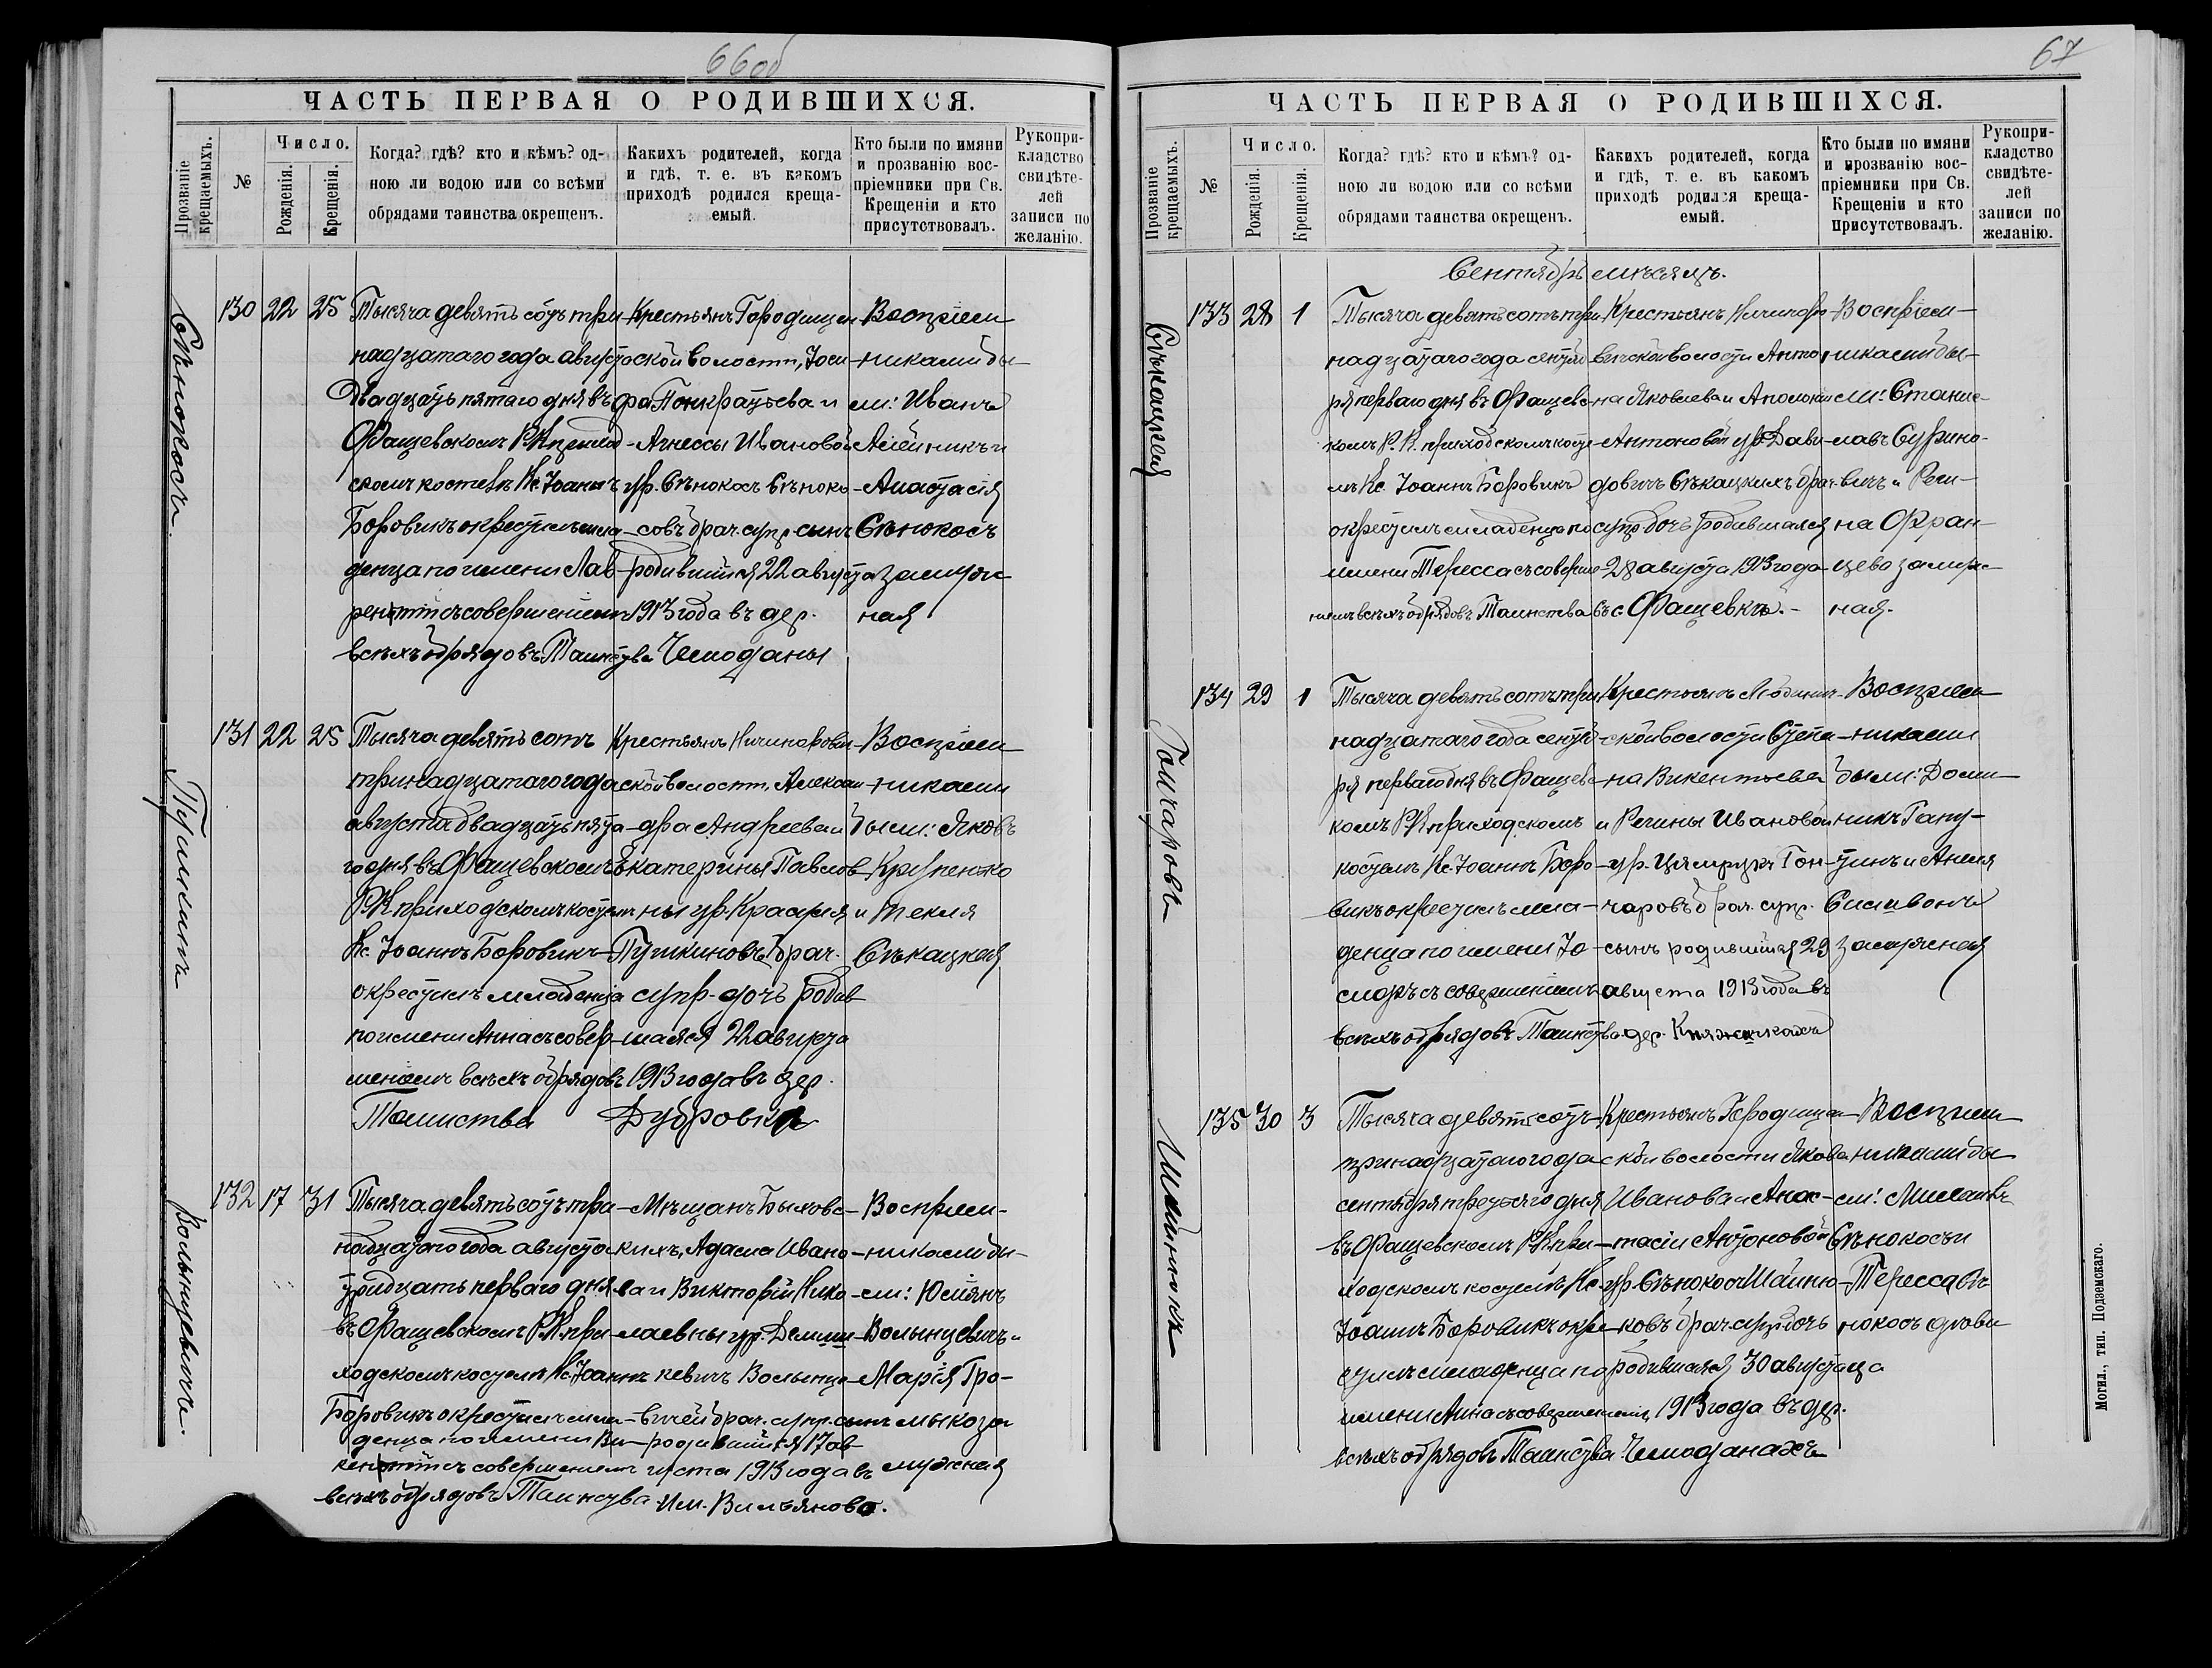 66 об
ЧАСТЬ ПЕРВАЯ О РОДИВШИХСЯ.
Прозваніе крещаемыхъ.
№
Число.
Рожденія.
Крещенія.
Когда? гдѣ? кто и кѣмъ? од-
ною ли водою или со всѣми
обрядами таинства окрещенъ.
Какихъ родителей, когда
и гдѣ, т. е. въ какомъ
приходѣ родился креща-
емый.
Кто были по имяни
и прозванію вос-
пріемники при Св.
Крещеніи и кто
присутствовалъ.
Рукопри-
кладство
свидѣте-
лей
записи по
желанію.
Сѣнокосъ
130 22 25
Тысяча девятьсотъ три
надцатаго года августа
двадцать пятаго дня въ
Фащевскомъ Р.К. приход
скомъ костелѣ Кс. Іоаннъ
Боровикъ окрестилъ мла-
денца по имени Лав-
рентій съ совершеніемъ
всѣхъ обрядовъ Таинства
Крестьянъ Городищен
ской волости, Іоси-
фа Понкратьева и
Агнессы Ивановой
ур. Сѣнокосъ Сѣноко-
совъ брач. супр. сынъ
родившійся 22 августа
1913 года въ дер.
Чемоданы
Воспріем
никами бы-
ли: Иванъ
Алейникъ и
Анастасія
Сѣнокосъ
замуж
ная
Пушкинъ
131 22 25
Тысяча девятьсотъ
тринадцатаго года
августа двадцать пята-
го дня въ Фащевскомъ
Р.К. приходскомъ костелѣ
Кс. Іоаннъ Боровикъ
окрестилъ младенца
по имени Анна съ совер-
шеніемъ всѣхъ обрядовъ
Таинства
Крестьянъ Ничипорови-
ской волости, Алексан-
дра Андреева и
Екатерины Павлов-
ны ур.
Пушкиновъ брач.
супр. дочь родив
шаяся 22 августа
1913 года въ дер.
Дубровка
Воспріем
никами
были: Яковъ
Крупенько
и Текля
Сѣкацкая
Волынцевичъ.
132 17 31
Тысяча девятьсотъ три-
надцатаго года августа
тридцать перваго дня
въ Фащевскомъ Р.К. при-
ходскомъ костелѣ Кс. Іоаннъ
Боровикъ окрестилъ мла-
денца по имени Ви-
кентій съ совершеніемъ
всѣхъ обрядовъ Таинства
Мѣщанъ Быховс-
кихъ, Адама Ивано-
ва и Викторіи Нико-
лаевны ур. Демиш-
кевичъ Волынце-
вичей брач. супр. сынъ
родившійся 17 ав-
густа 1913 года въ
им. Вильяново.
Воспріем-
никами бы-
ли: Юліянъ
Волынцевичъ и
Марія Гро-
мыко за-
мужняя
67
ЧАСТЬ ПЕРВАЯ О РОДИВШИХСЯ.
Прозваніе крещаемыхъ.
№
Число.
Рожденія.
Крещенія.
Когда? гдѣ? кто и кѣмъ? од-
ною ли водою или со всѣми
обрядами таинства окрещенъ.
Какихъ родителей, когда
и гдѣ, т. е. въ какомъ
приходѣ родился креща-
емый.
Кто были по имяни
и прозванію вос-
пріемники при Св.
Крещеніи и кто
присутствовалъ.
Рукопри-
кладство
свидѣте-
лей
записи по
желанію.
Сентябрь мѣсяцъ.
Сѣкацкая
133 28 1
Тысяча девятьсотъ три
надцатаго года сентяб
ря перваго дня въ Фащевс-
комъ Р. К. приходскомъ косте-
лѣ Кс. Іоаннъ Боровикъ
окрестилъ младенца по
имени Тересса съ соверше-
ніемъ всѣхъ обрядовъ Таинства
Крестьянъ Ничипоро-
вичской волости Анто
на Яковлева и Аполоніи
Антоновой ур. Дави-
довичъ Сѣкацкихъ брач.
супр. дочь родившаяся
28 августа 1913 года
въ с. Фащевкѣ.
Воспріем-
никами бы-
ли: Станис-
лавъ Сурино-
вичъ и Реги-
на Фран-
цева замуж-
ная.
Гончаровъ
134 29 1
Тысяча девятьсотъ три
надцатаго года сентяб-
ря перваго дня въ Фащевс-
комъ Р.К. приходскомъ
костелѣ Кс. Іоаннъ Боро-
викъ окрестилъ мла-
денца по имени Іо-
сифъ съ совершеніемъ
всѣхъ обрядовъ Таинства
Крестьянъ
ской волости Степа-
на Викентьева
и Регины Ивановой
ур. Гон-
чаровъ брач. супр.
сынъ родившійся 29
августа 1913 года въ
дер. Княжичахъ
Воспріем
никами
были: Доми-
никъ
и Анеля
Силивонъ
замужняя
Шайнюкъ
135 30 3
Тысяча девятьсотъ
тринадцатаго года
сентября третьяго дня
въ Фащевскомъ Р.К. при-
ходскомъ костелѣ Кс.
Іоаннъ Боровикъ окре-
стилъ младенца по
имени Анна съ совершеніемъ
всѣхъ обрядовъ Таинства
Крестьянъ Городищен-
ской волости Якова
Иванова и Анас-
тасіи Антоновой
ур. Сѣнокосъ Шайню-
ковъ брач. супр. дочь
родившаяся 30 августа
1913 года въ дер.
Чемоданахъ
Воспріем
никами бы
ли:
Сѣнокосъ и
Тересса Сѣ-
нокосъ дѣви
ца
Могил., тип. Подземскаго.